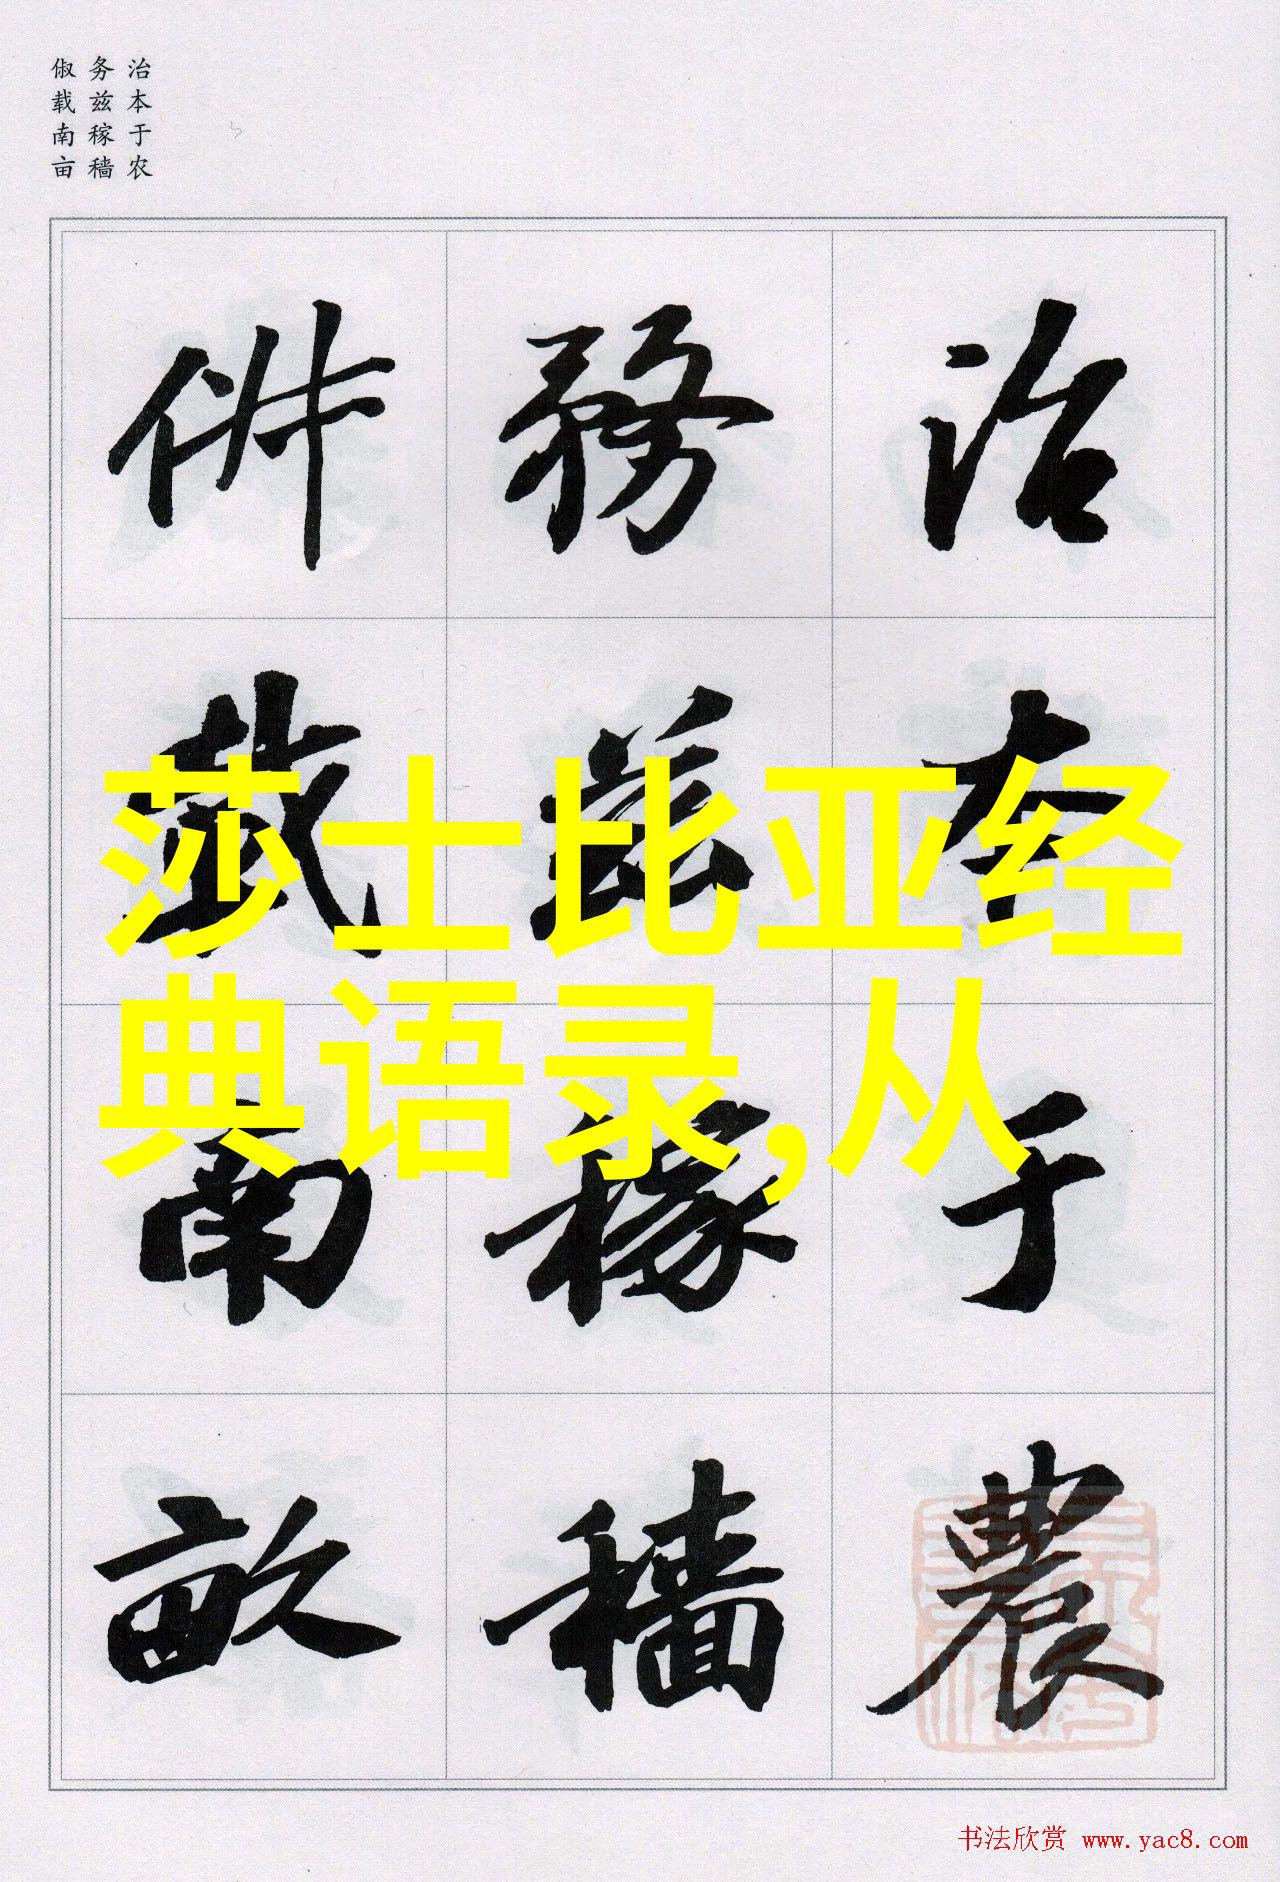 治本于农
务兹稼穑
俶载南亩
治本于農
務兹稼穡
俶載南畝
莎士比亚经
典语录,从
书法欣赏 www.yac8.com